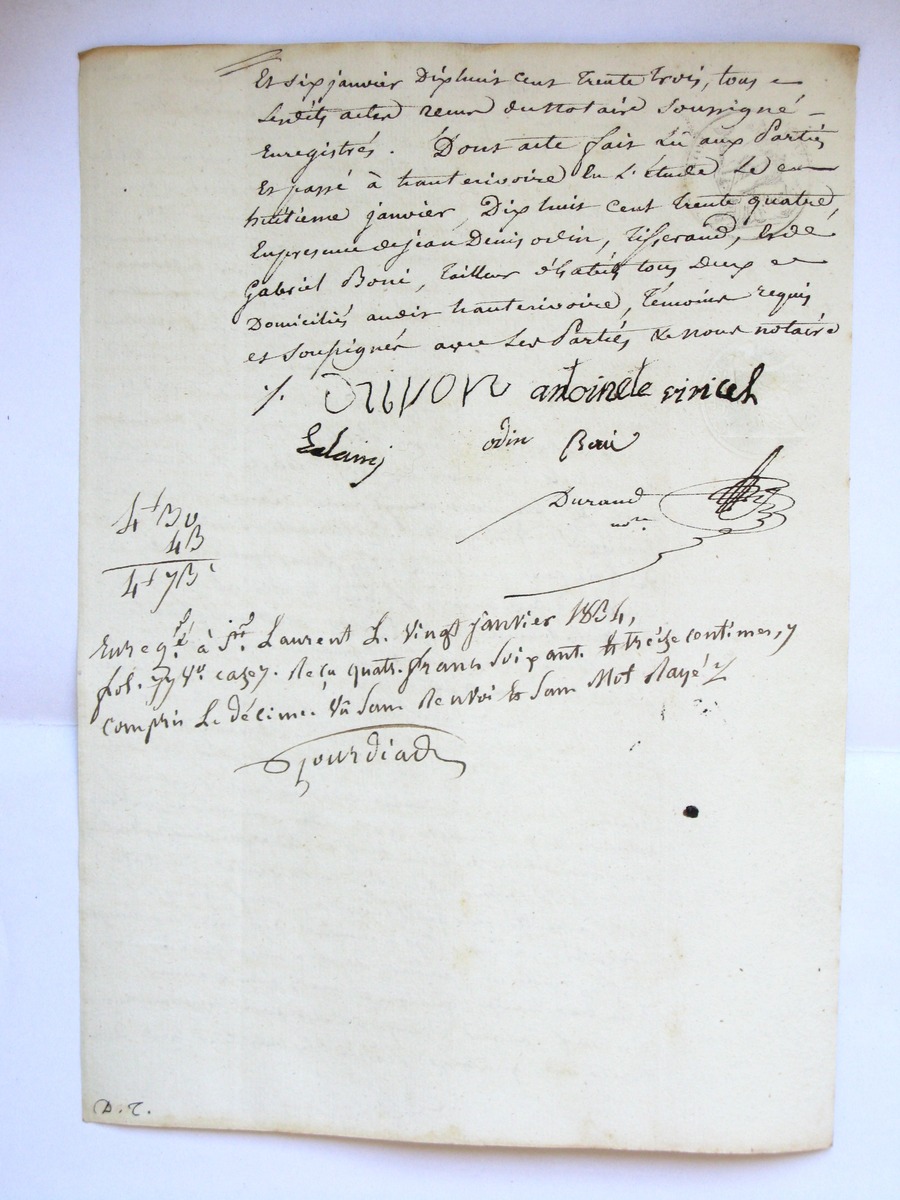 Et six janvier Dix huit cent trente trois, tous
Lesdits actes recus du Notaire soussigné
Enregistrés. Dont acte fait Lû aux Parties
Et passé à hauterivoire En L'étude Le
huitieme janvier, Dix huit cent trente quatre,
En presence de jean Denis odin, tisserand, et de
gabriel Boni, tailleur d'habits tous deux
Domiciliés audit hauterivoire, témoins requis
et soussignés avec Les Parties & nous notaire
antoinete vincel
odin
Durand
nore
4f 7
Enregté à st Laurent L. vingt janvier 1834,
fol. 77 vo. case 7. Reçu quatre francs soixante & treize centimes, y
compris Le décime. Vû sans Renvoi & sans Mot Rayé
D. T.